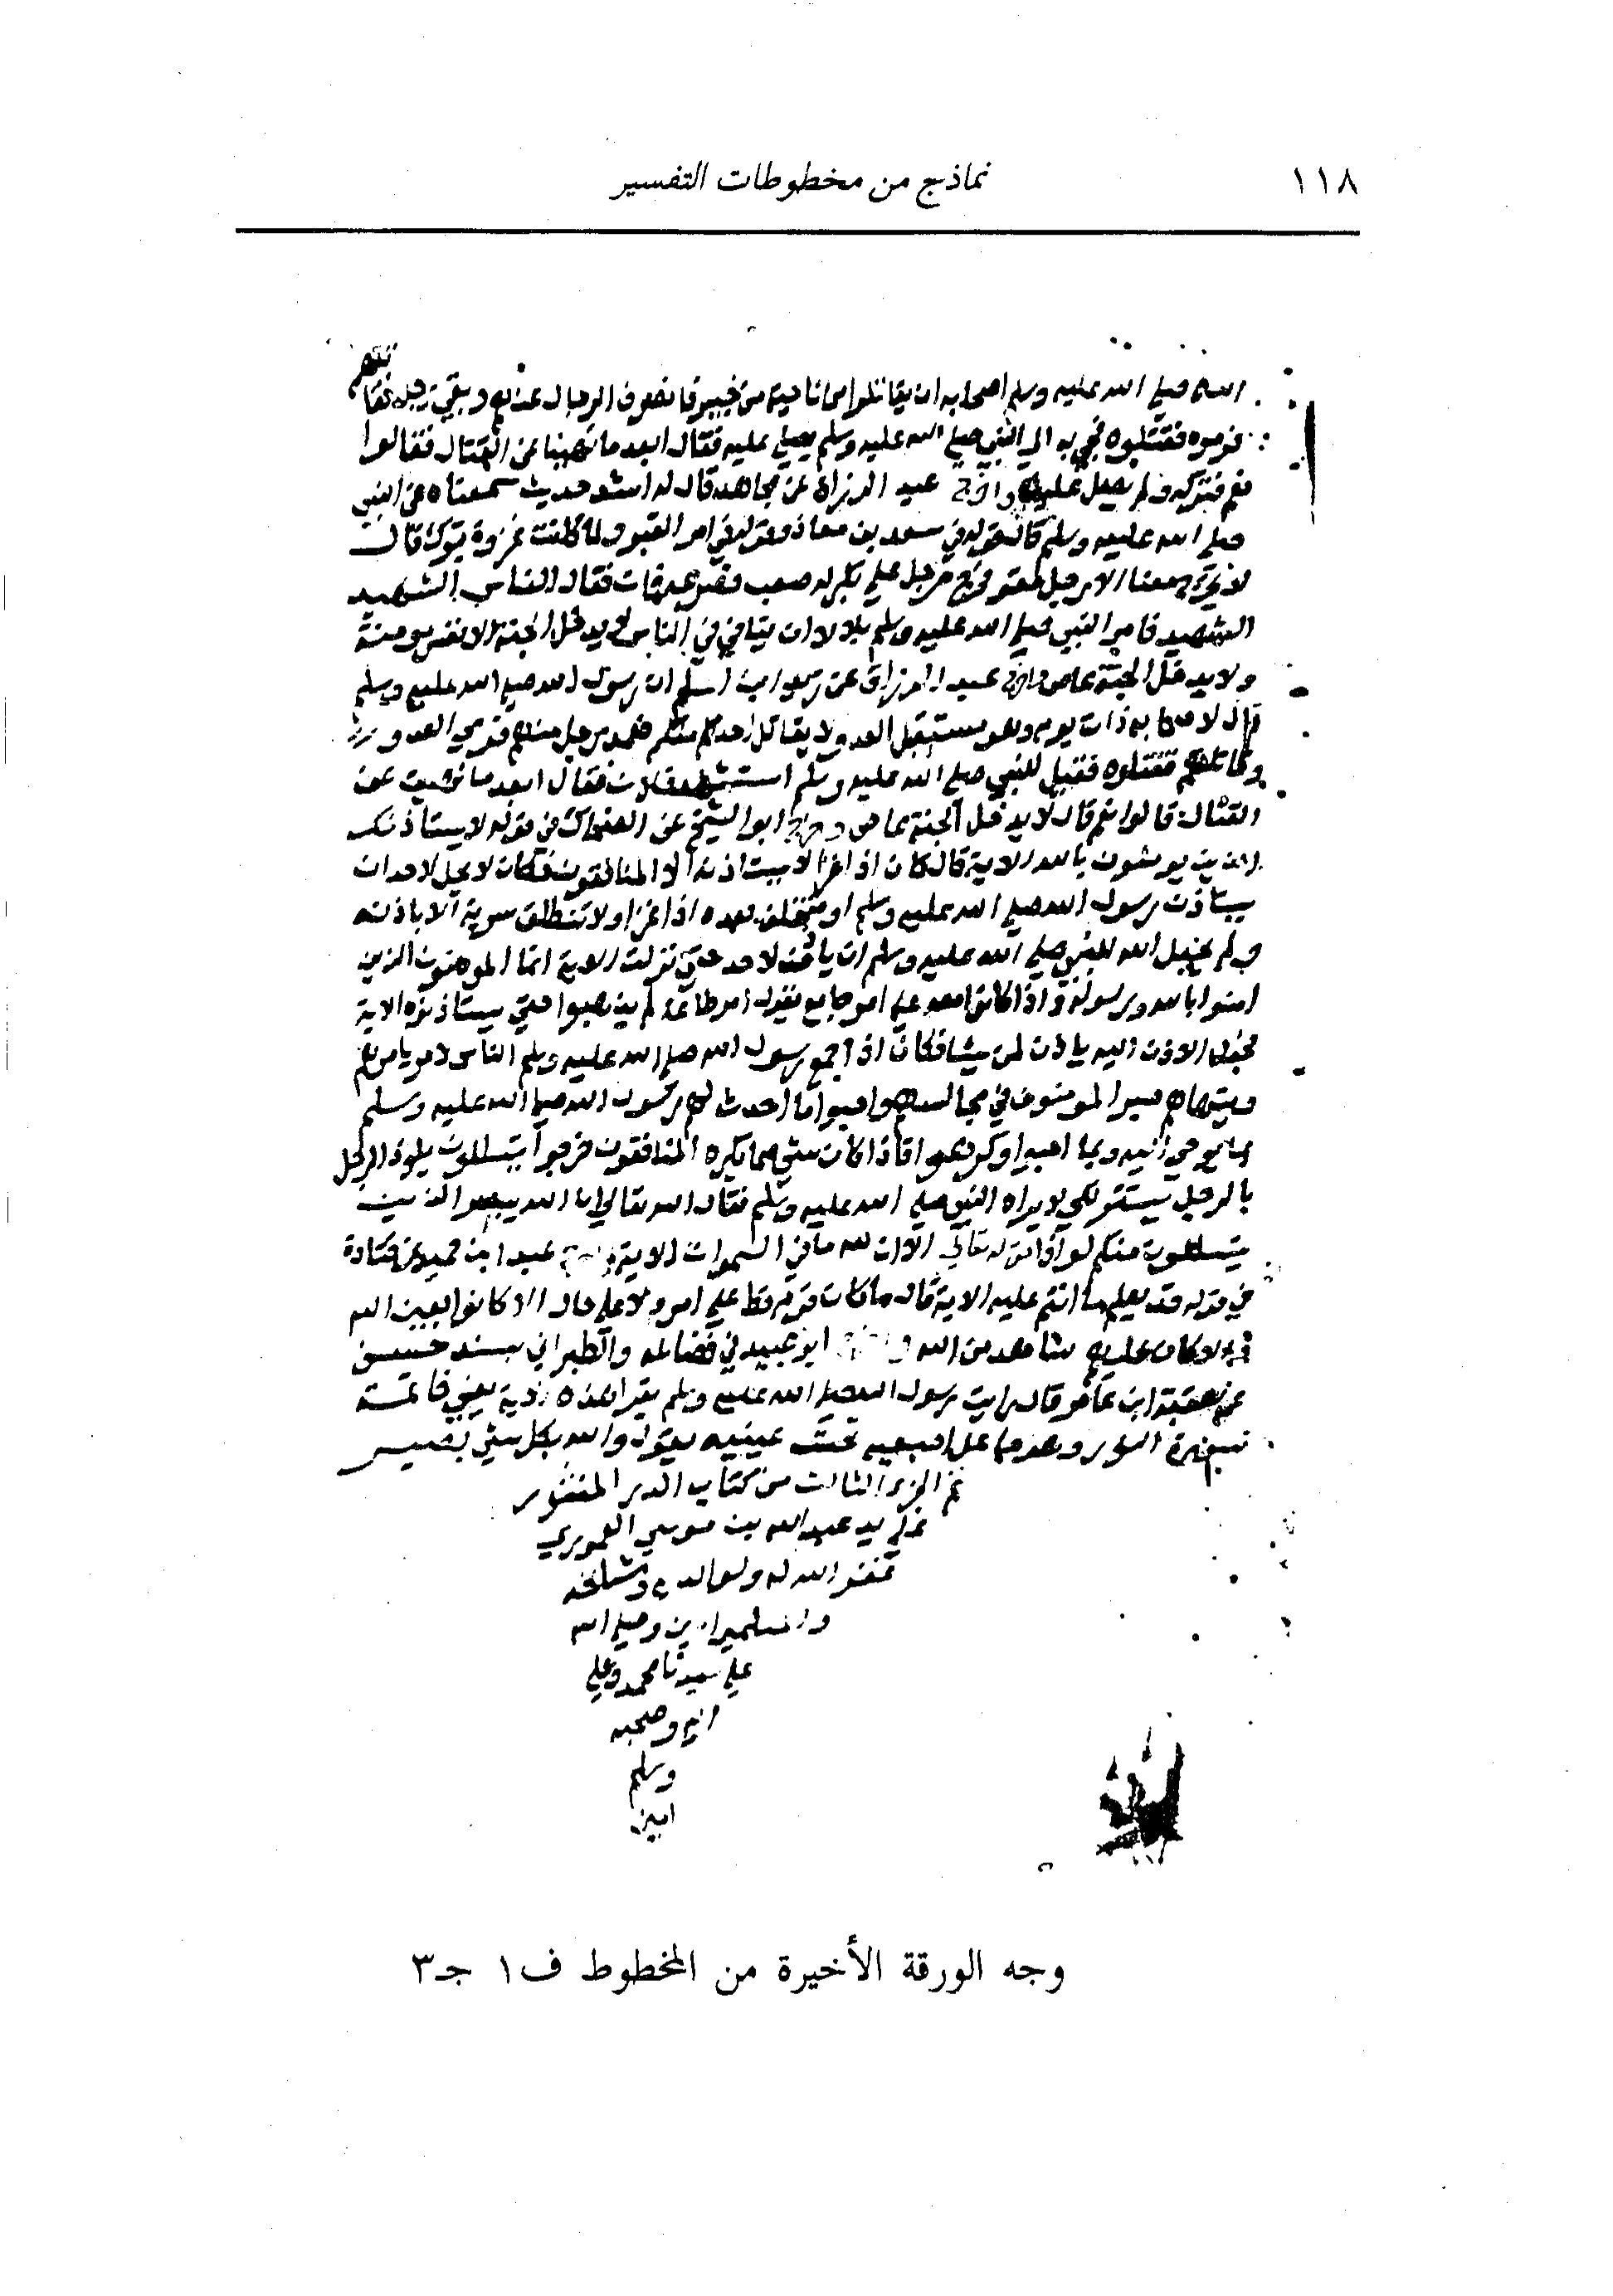 ١١٨
نماذج من مخطوطات التفسير
الله صلى الله عليه وسلم اصحابه ان يقاتلوا من ناحية من خيبر فانصرف الرجال عنهم وبقي رجل فقاتلهم
فرموه فقتلوه فجي به الى النبي صلى الله عليه وسلم يصلي عليه فقال ابعد ما نهينا عن القتال فقالوا
نعم فتركه ولم يصل عليه واخرج عبد الرزاق عن مجاهد قال له اشد حديث سمعناه عن النبي
صلى الله عليه وسلم قال قوله في سعد بن معاذ وقوله في امر القبر ولما كانت غزوة تبوك قال
لا يخرج معنا الا رجل مقو فخرج رجل على بكر له صعب فصرعه فمات فقال الناس الشهيد
الشهيد فامر النبي صلى الله عليه وسلم بلالا ان ينادي في الناس لا يدخل الجنة الا نفس مومنة
ولا يدخل الجنة عاص واخرج عبد الرزاق عن زيد ابن اسلم ان رسول الله صلى الله عليه وسلم
قال لاصحابه ذات يوم وهو مستقبل العدو لا يقاتل احد منكم فعمد رجل منهم فرمي العدو
وقاتلهم فقتلوه فقيل للنبي صلى الله عليه وسلم استشهد فلان فقال ابعد ما نهيت عن
القتال قالوا نعم قال لا يدخل الجنة عاص واخرج ابو الشيخ عن الضحاك في قوله لا يستاذنك
الذين يومنون بالله الاية قال كان اذا غزا لا يستاذنه الا المنافقون فكان لا يحل لاحد ان
يستاذن رسول الله صلى الله عليه وسلم او يتخلف بعده اذا غزا ولا تنطلق سرية الا باذنه
ولم يجعل الله للنبي صلى الله عليه وسلم ان ياذن لاحد حتى نزلت الاية انما المومنون الذين
امنوا بالله ورسوله واذا كانوا معه على امر جامع يقول امر طاعة لم يذهبوا حتي يستاذنوه الاية
فجعل الاذن اليه ياذن لمن يشا فكان اذا جمع رسول الله صلى الله عليه وسلم الناس لامر يامرهم
وينهاهم صبر المومنون في مجالسهم واحبوا ما احدث لهم رسول الله صلى الله عليه وسلم
بما يوحي اليه وبما احبوا وكرهوا فاذا كان شي مما يكره المنافقون خرجوا يتسللون يلوذ الرجل
بالرجل يستتر لكي لا يراه النبي صلى الله عليه وسلم فقال الله تعالى ان الله يبصر الذين
يتسللون منكم لواذا قوله تعالى الا ان لله ما في السموات الاية واخرج عبد ابن حميد عن قتادة
في قوله قد يعلم ما انتم عليه الاية قال ما كان قوم قط على امر ولا على حال الا كانوا بعين الله
والا كان عليهم شاهد من الله واخرج ابو عبيد في فضائله والطبراني بسند حسن
عن عقبة ابن عامر قال رايت رسول الله صلى الله عليه وسلم يقرا هذه الاية يعني خاتمة
سورة النور وهو جاعل اصبعيه تحت عينيه يقول والله بكل شي بصير
تم الجزء الثالث من كتاب الدر المنثور
على يد عبد الله بن موسى
غفر الله له ولوالديه
والمسلمين امين وصلى الله
على سيدنا محمد وعلى
اله وصحبه
وسلم
امين
وجه الورقة الأخيرة من المخطوط ف١ جـ٣